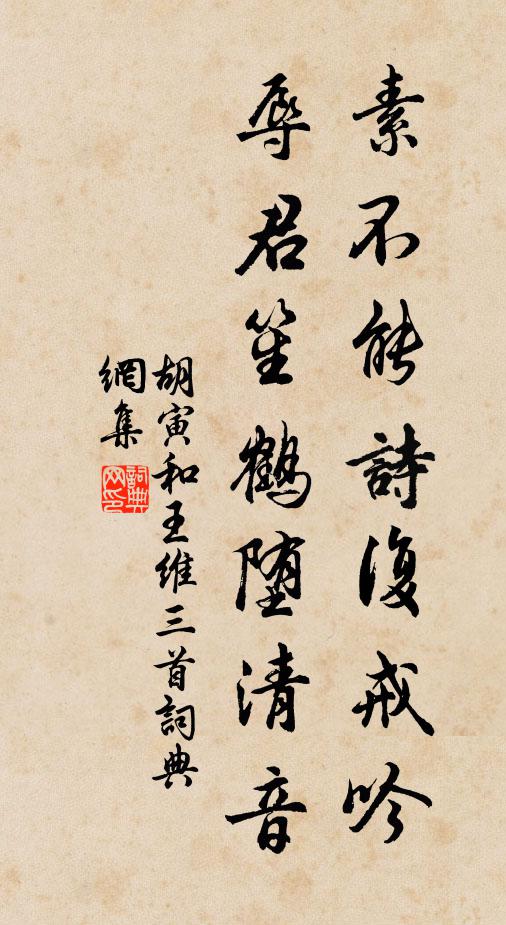 素不能詩復戒吟
辱君笙鶴堕清音
胡寅和王維三首詞典
網集
詞典网印